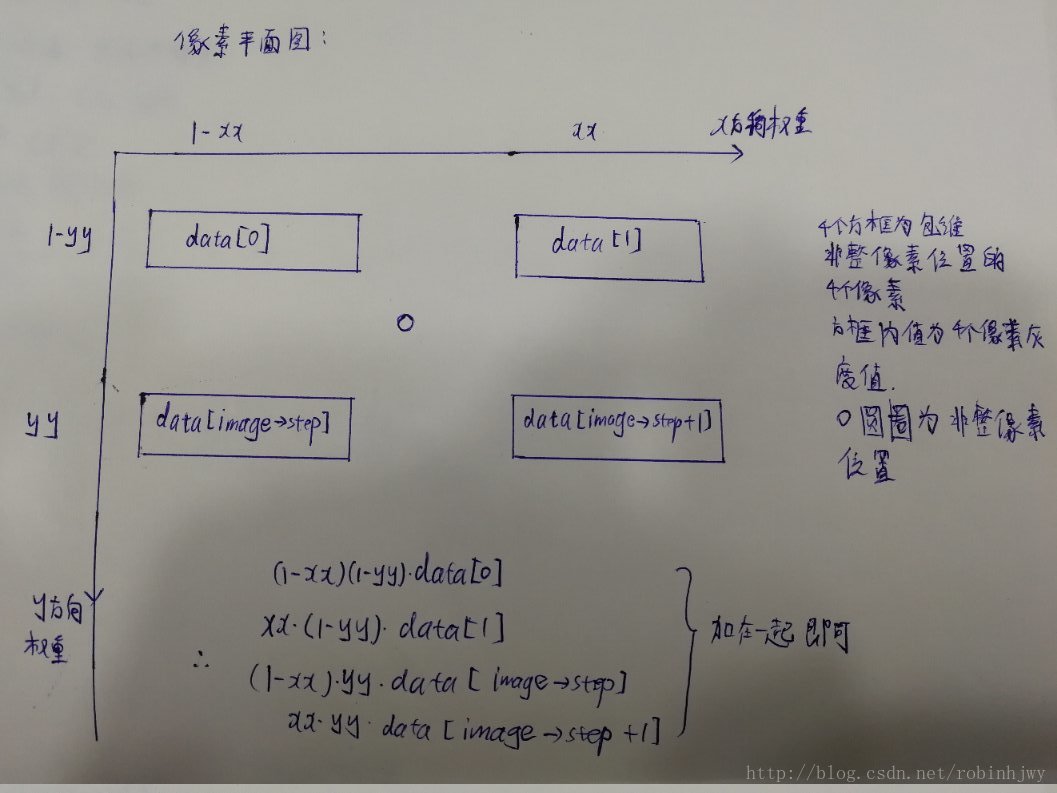 像素平面图：
1-xx
xx
x方向权重
1-yy
data[0]
data[1]
4个方框为包维
非整像素位置的
4个像素
方框内值为4个像素灰
度值.
O圆圈为非整像素
位置
yy
data[image→step]
data[image→step+1]
y方向
权重
(1-xx)(1-yy)·data[0]
xx·(1-yy)·data[1]
∴
(1-xx)·yy·data[image→step]
xx·yy·data[image→step+1]
加在一起即可
http://blog.csdn.net/robinhjwy